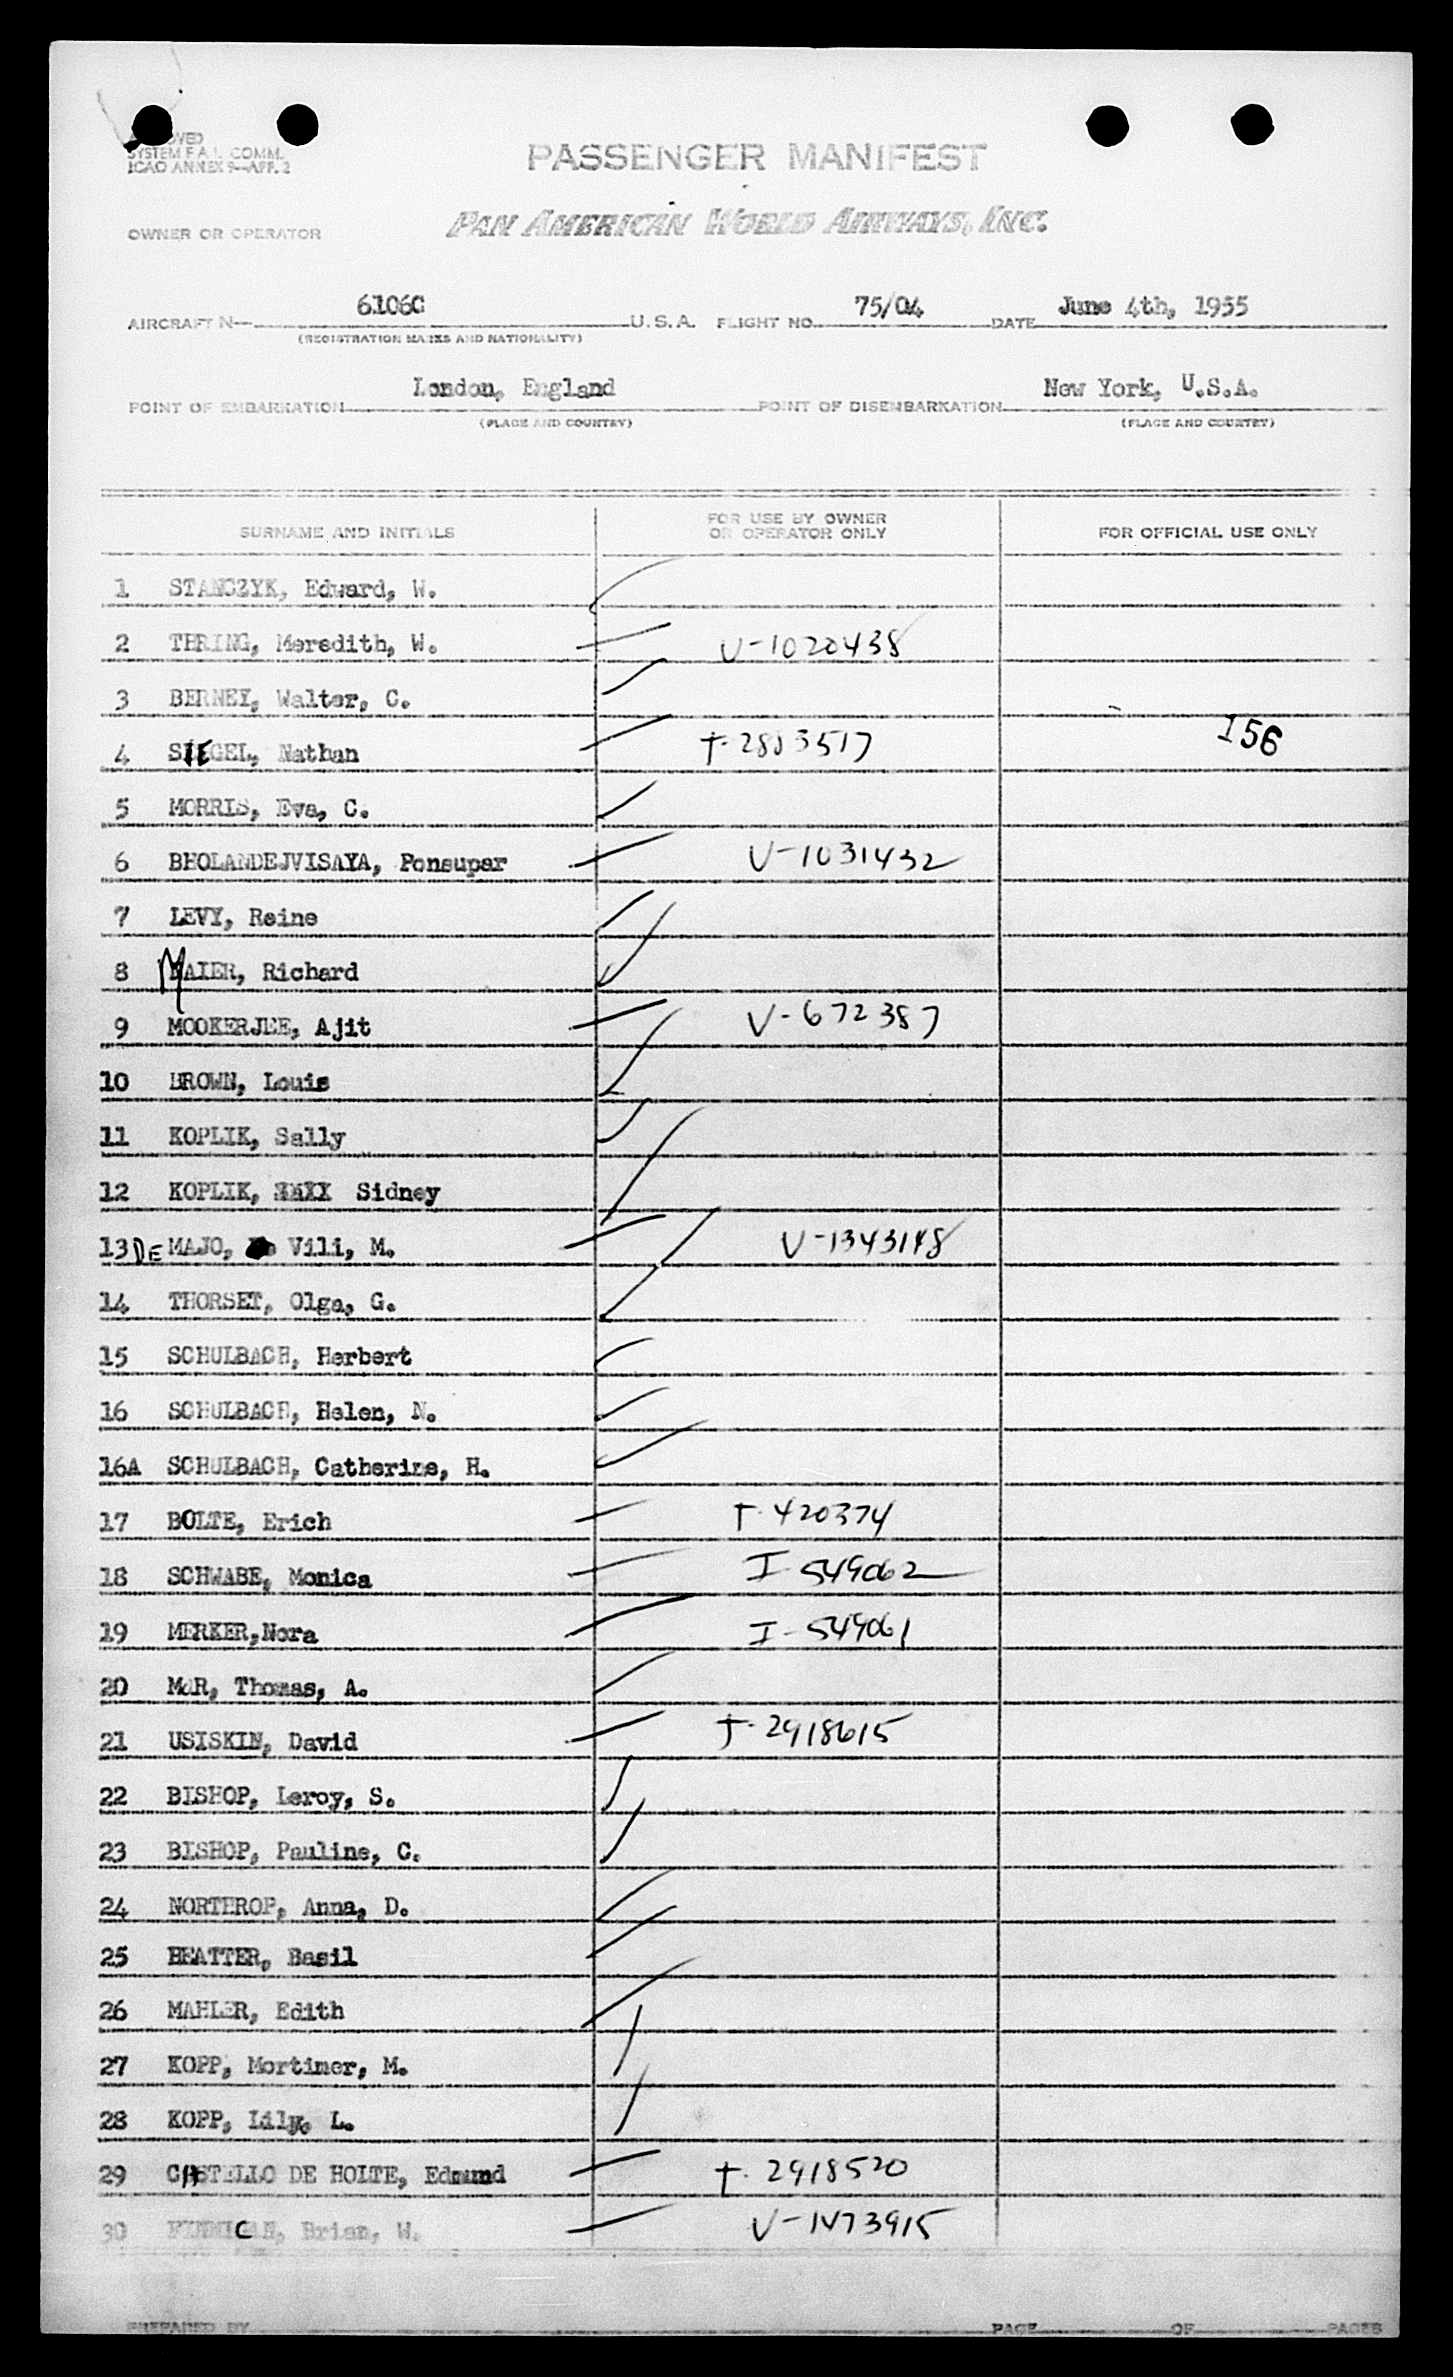 SYSTEM F.A.L. COMM.
ICAO ANNEX 9—APP. 2
PASSENGER MANIFEST
OWNER OR OPERATOR PAN AMERICAN WORLD AIRWAYS, INC.
AIRCRAFT N— 6106C U.S.A. FLIGHT NO. 75/04 DATE June 4th, 1955
(REGISTRATION MARKS AND NATIONALITY)
POINT OF EMBARKATION London, England POINT OF DISEMBARKATION New York, U.S.A.
(PLACE AND COUNTRY) (PLACE AND COUNTRY)
SURNAME AND INITIALS FOR USE BY OWNER OR OPERATOR ONLY FOR OFFICIAL USE ONLY
1 STANCZYK, Edward, W.
2 THRING, Meredith, W. V-1020438
3 BERNEY, Walter, C.
4 SIEGEL, Nathan T-2883517 156
5 MORRIS, Eva, C.
6 BHOLANDEJVISAYA, Ponsupar V-1031432
7 LEVY, Reine
8 MAIER, Richard
9 MOOKERJEE, Ajit V-672387
10 BROWN, Louis
11 KOPLIK, Sally
12 KOPLIK, Sidney
13 DE MAJO, Vili, M. V-1343148
14 THORSET, Olga, G.
15 SCHULBACH, Herbert
16 SCHULBACH, Helen, N.
16A SCHULBACH, Catherine, H.
17 BOLTE, Erich T-420374
18 SCHWABE, Monica I-549062
19 MERKER,Nora I-549061
20 Thomas, A.
21 USISKIN, David T-2918615
22 BISHOP, Leroy, S.
23 BISHOP, Pauline, C.
24 NORTHROP, Anna, D.
25 BEATTER, Basil
26 MAHLER, Edith
27 KOPP, Mortimer, M.
28 KOPP, Lily, L.
29 CASTELLO DE HOLTE, Edmund T-2918520
30 Brian, W. V-1473915
PREPARED BY PAGE OF PAGES